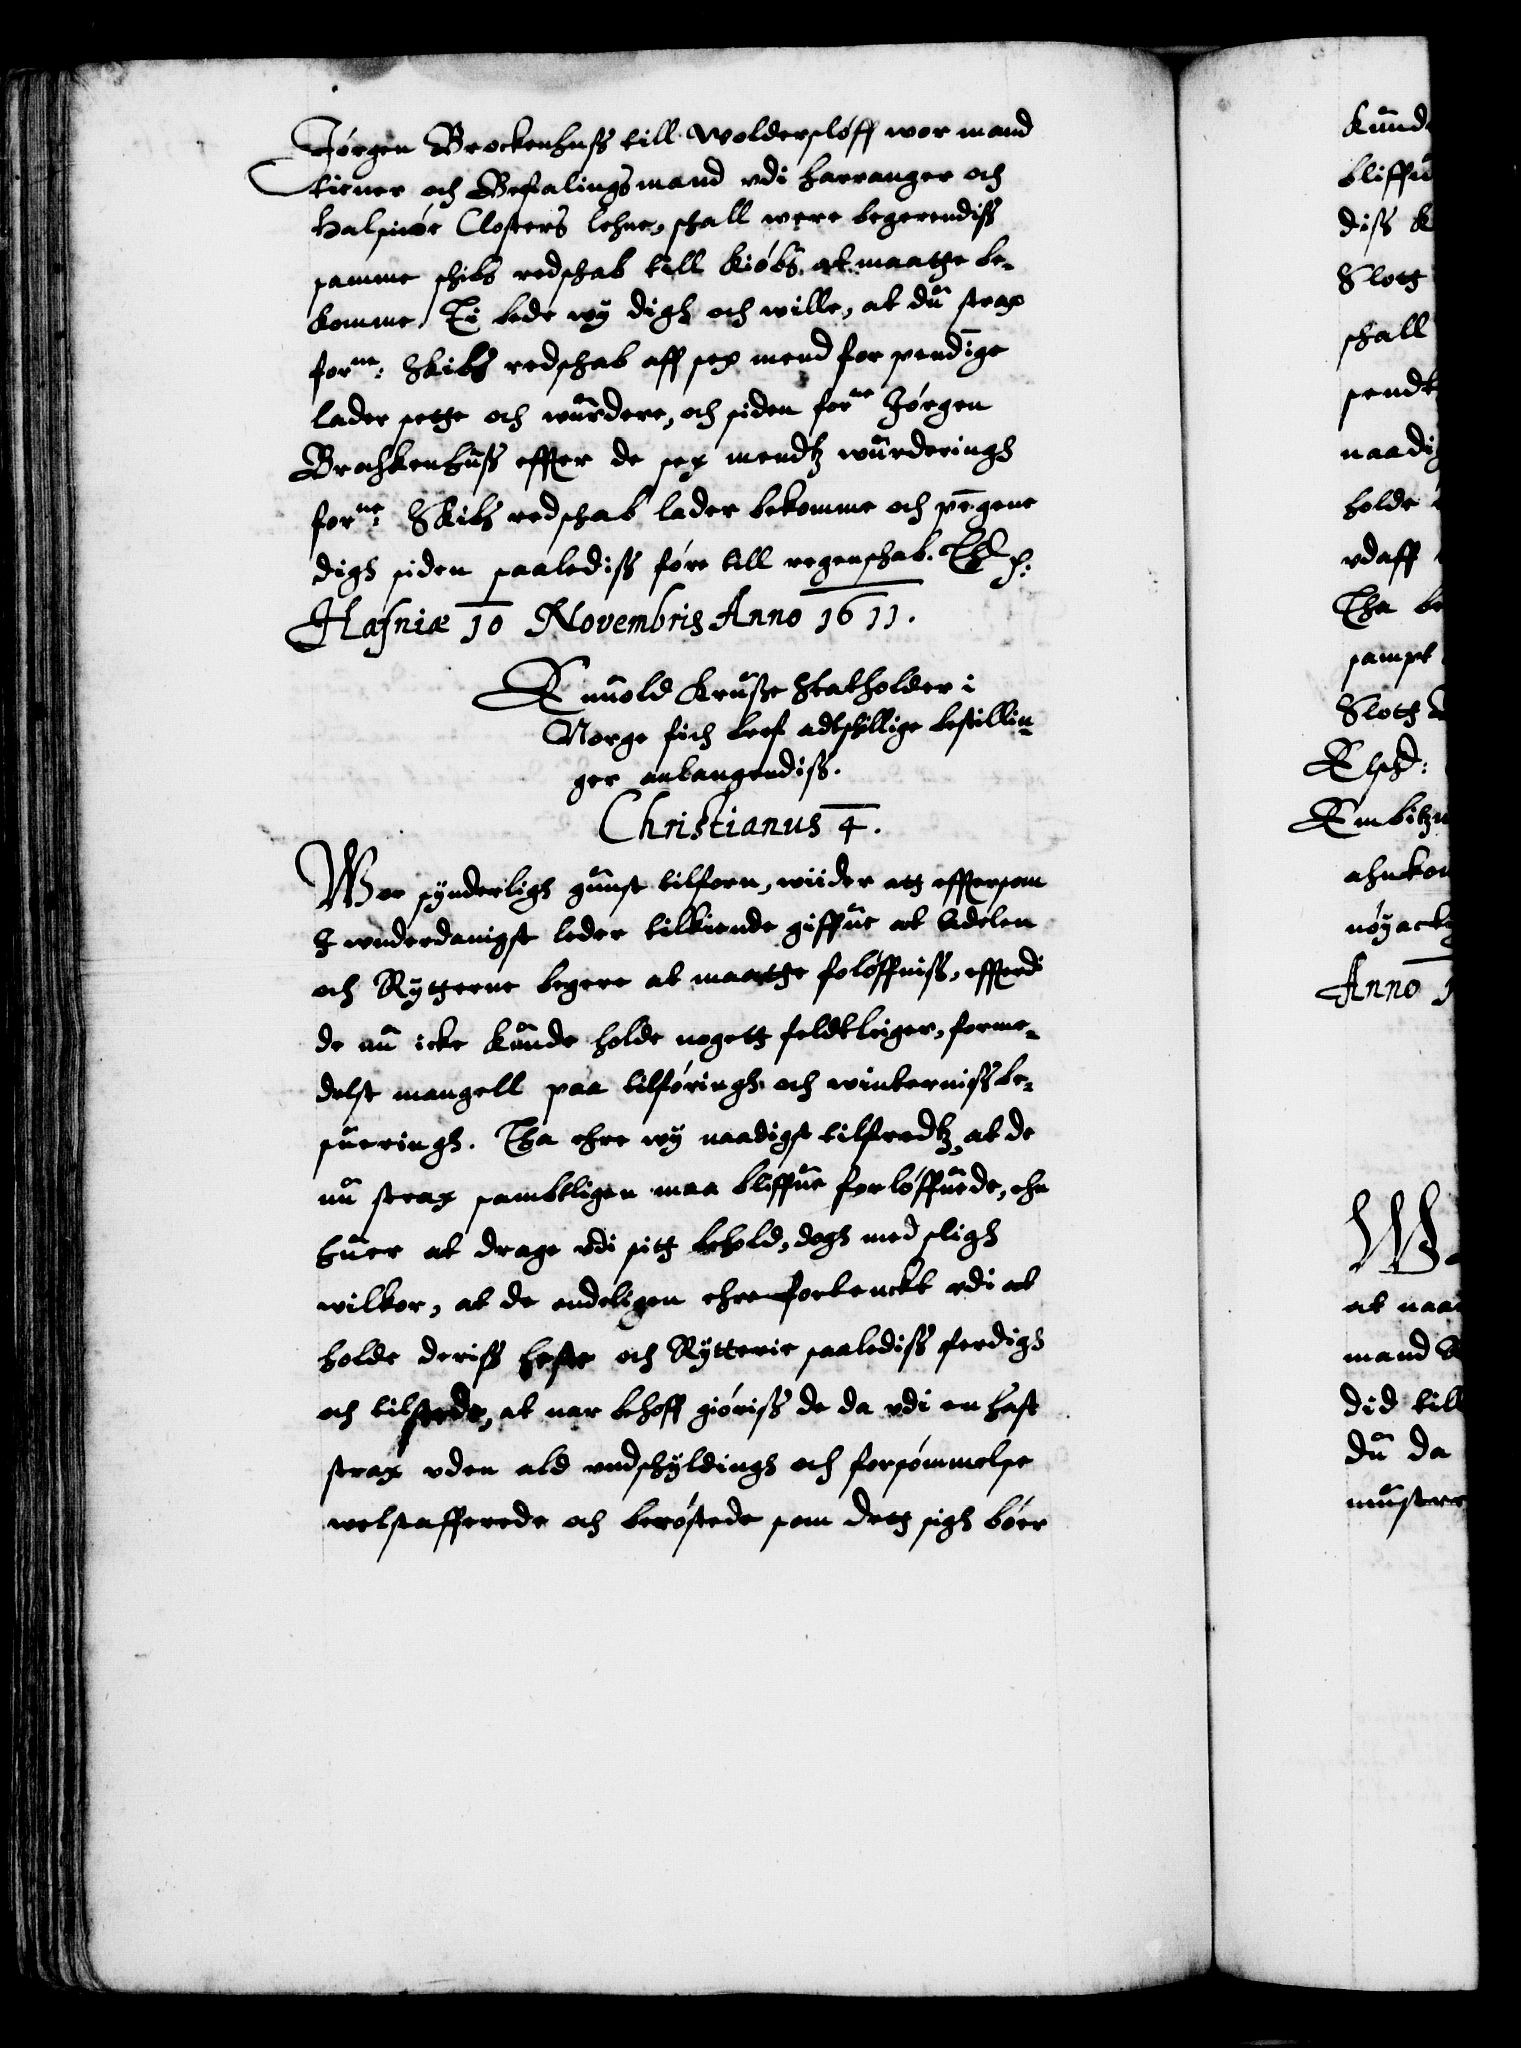 Jørgen Brockenhuss till Wolderslöff wor mand
tiener och Befalingsmand vdi Harranger och
Halsnöe Closters lehne, schall were begerendiss
samme schibs redschab till Kiöbs at maatge be-
komme, Ti bede wy digh och wille, at dŭ strax
forne: Skibs redschab aff sex mend for pendinge
lader sette och wŭrdere, och siden forne Jörgen
Brochkenhŭss effter de sex mendtz wŭrderingh
forne: Skibs redschab lader bekomme och pengene
digh siden saalediss före till regenschab.
Hafniæ 10 Novembris Anno 1611.
Enuold Krŭsse Statholder i
Norge fich bref adtskillige bestillin-
ger anlangendiss.
Christianus 4.
Wor synderligh gŭnst tilforn, wiider att efftersom
I wnderdanigst leder tilkiende giffŭe at Adelen
och Rytterne begere at maatge foløffniss, effterdi
de nŭ icke kŭnde holde nogett feldtleiger, forme-
delst mangell paa tilföringh och winterniss be-
suerings. Tha ehre wy naadigst tilfredtz, at de
nŭ strax sambtligen maa bliffŭe forløffŭede, ehn
hŭer at drage vdi sitt behold, dogh med sligh
wilkor, at de endeligen ehre fortenckt vdi at
holde deriss heste och Rytterie saalediss ferdigh
och tilstede, at nar behoff giöriss de da vdi en hast
strax vden ald vndschyldingh och forsømmelse
welstafferede och beröstede som dett sigh böer
Kŭnd
bliffŭ
diss K
Slott
schall
sendt
naadig
holde
vdaff
Tha be
sampt
Slott
Elschd:
Embitzm
ahnkom
nöyackt
Anno 1
W
at naa
mand
did till
dŭ da
mŭstere